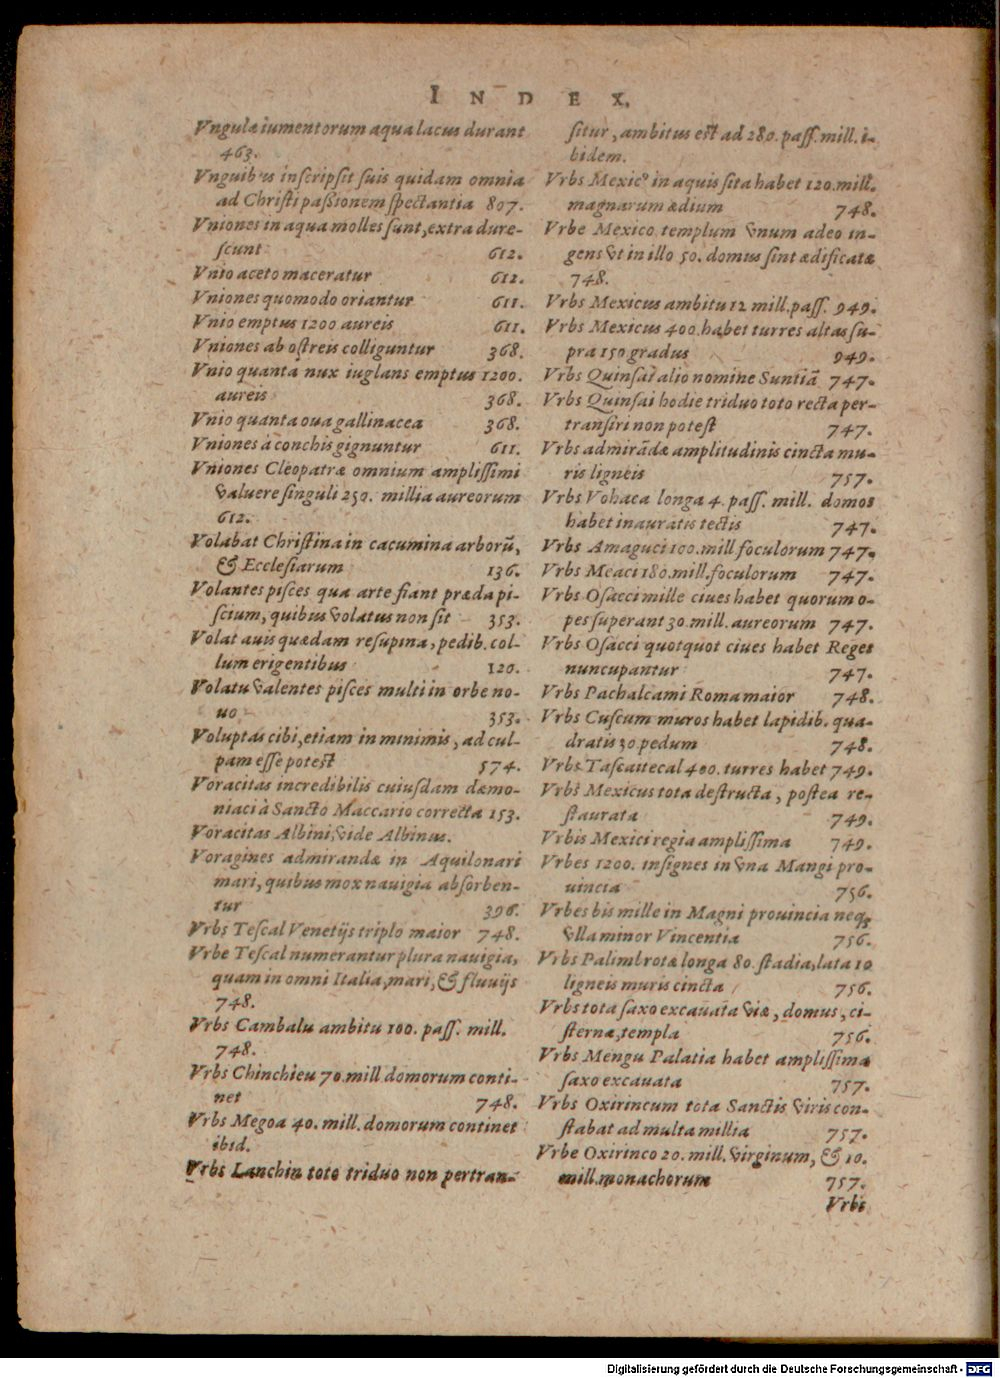 INDEX.
Vngulæ iumentorum aqua lacus durant
463.
Vnguibus inscripsit suis quidam omnia
ad Christi passionem spectantia 807.
Vniones in aqua molles sunt, extra dure-
scunt 612.
Vnio aceto maceratur 612.
Vniones quomodo oriantur 611.
Vnio emptus 1200 aureis 611.
Vniones ab ostreis colliguntur 368.
Vnio quanta nux iuglans emptus 1200.
aureis 368.
Vnio quanta oua gallinacea 368.
Vniones à conchis gignuntur 611.
Vniones Cleopatræ omnium amplissimi
valuere singuli 250. millia aureorum
612.
Volabat Christina in cacumina arborũ,
& Ecclesiarum 136.
Volantes pisces qua arte fiant præda pi-
scium, quibus volatus non sit 353.
Volat auis quædam resupina, pedib. col-
lum erigentibus 120.
Volatu valentes pisces multi in orbe no-
uo 353.
Voluptas cibi, etiam in minimis, ad cul-
pam esse potest 574.
Voracitas incredibilis cuiusdam dæmo-
niaci à Sancto Maccario correcta 153.
Voracitas Albini, vide Albinus.
Voragines admirandæ in Aquilonari
mari, quibus mox nauigia absorben-
tur 396.
Vrbs Tescal Venetijs triplo maior 748.
Vrbe Tescal numerantur plura nauigia,
quam in omni Italia, mari, & fluuijs
748.
Vrbs Cambalu ambitu 100. pass. mill.
748.
Vrbs Chinchieu 70. mill domorum conti-
net 748.
Vrbs Megoa 40. mill. domorum continet
ibid.
Vrbs Lanchin toto triduo non pertran-
situr, ambitus est ad 280. pass. mill. i-
bidem.
Vrbs Mexicꝰ in aquis sita habet 120. mill.
magnarum ædium 748.
Vrbe Mexico templum vnum adeo in-
gens vt in illo 50. domus sint ædificatæ
748.
Vrbs Mexicus ambitu 12 mill. pass. 949.
Vrbs Mexicus 400. habet turres altas su-
pra 150 gradus 949.
Vrbs Quinsai alio nomine Suntiã 747.
Vrbs Quinsai hodie triduo toto recta per-
transiri non potest 747.
Vrbs admirãdæ amplitudinis cincta mu-
ris ligneis 757.
Vrbs Vohaca longa 4. pass. mill. domos
habet inauratis tectis 747.
Vrbs Amaguci 100. mill foculorum 747.
Vrbs Meaci 180. mill. foculorum 747.
Vrbs Osacci mille ciues habet quorum o-
pes superant 30. mill. aureorum 747.
Vrbs Osacci quotquot ciues habet Reges
nuncupantur 747.
Vrbs Pachalcami Roma maior 748.
Vrbs Cuscum muros habet lapidib. qua-
dratis 30 pedum 748.
Vrbs Tascaitecal 400. turres habet 749.
Vrbs Mexicus tota destructa, postea re-
staurata 749.
Vrbis Mexici regia amplissima 749.
Vrbes 1200. insignes in vna Mangi pro-
uincia 756.
Vrbes bis mille in Magni prouincia neq;
vlla minor Vincentia 756.
Vrbs Palimbrotæ longa 80. stadia, lata 10
ligneis muris cincta 756.
Vrbs tota saxo excauata viæ, domus, ci-
sternæ, templa 756.
Vrbs Mengu Palatia habet amplissima
saxo excauata 757.
Vrbs Oxirincum tota Sanctis viris con-
stabat ad multa millia 757.
Vrbe Oxirinco 20. mill. virginum, & 10.
mill. monachorum 757.
Vrbs
Digitalisierung gefördert durch die Deutsche Forschungsgemeinschaft - DFG